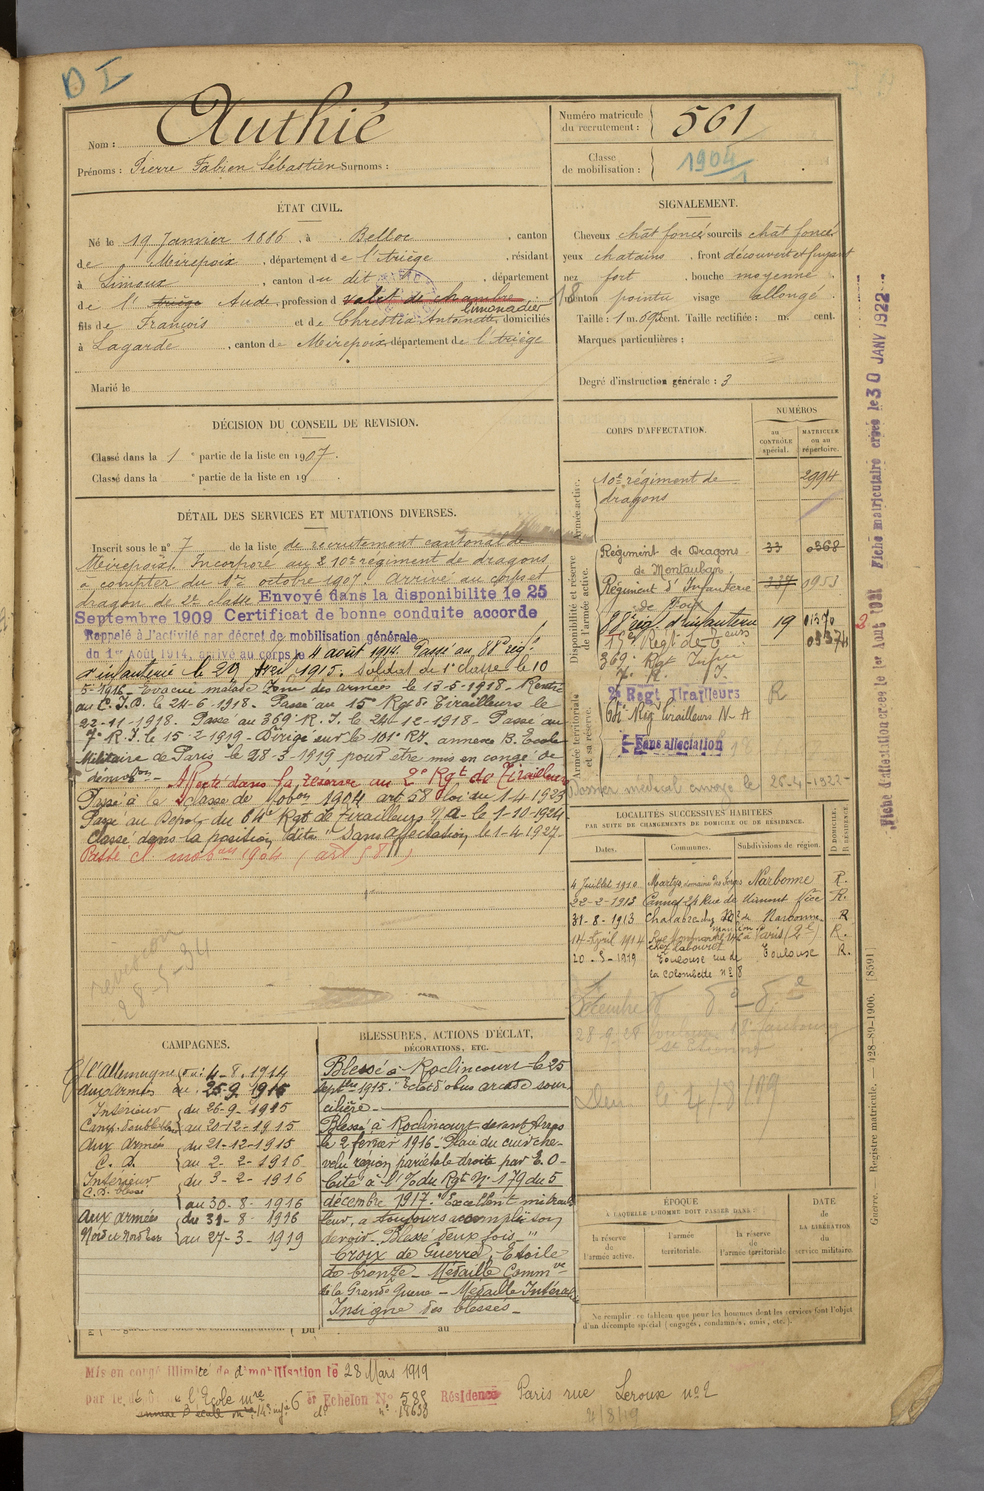 D I
Nom : Authié
Prénoms : Pierre Fabien Sébastien Surnoms :
Numéro matricule du recrutement : 561
Classe de mobilisation : 1904
ÉTAT CIVIL.
Né le 19 Janvier 1886, à Belloc, canton
de Mirepoix, département de l'Ariège, résidant
à Limoux, canton du dit, département
de l' Ariège Aude, profession d valet de chambre limonadier
fils de François et de Chrestia Antoinette, domiciliés
à Lagarde, canton de Mirepoix, département de l'Ariège
Marié le
SIGNALEMENT.
Cheveux chat foncé sourcils chat foncés
yeux chatains, front découvert et fuyant
nez fort, bouche moyenne
menton pointu visage allongé.
Taille : 1 m. 69 cent. Taille rectifiée : m. cent.
Marques particulières :
Degré d'instruction générale : 3
DÉCISION DU CONSEIL DE REVISION.
Classé dans la 1e partie de la liste en 1907.
Classé dans la e partie de la liste en 19
DÉTAIL DES SERVICES ET MUTATIONS DIVERSES.
Inscrit sous le n° 7 de la liste de recrutement cantonal de
Mirepoix. Incorporé au 10e régiment de dragons
à compter du 1er octobre 1907. Arrivé au corps et
dragon de 2e classe Envoyé dans la disponibilite le 25
Septembre 1909 Certificat de bonne conduite accorde
Rappelé à l'activité par décret de mobilisation générale
du 1er Août 1914, arrivé au corps le 4 août 1914. Passé au 88e rég.
d'infanterie le 29 Avril 1915. Soldat de 1e classe le 10
5-1916. Evacué malade Zone des armées le 13-5-1918. Rentré
au C.I.D. le 24-6-1918. Passé au 15 Rgt de Tirailleurs le
22-11-1918. Passé au 369 R.I. le 24-12-1918. Passé au
7e R.I. le 15-2-1919. Dirigé sur le 101e RI. annexe B. Ecole
Militaire de Paris le 28-3-1919 pour être mis en congé de
démobon. Affecté dans la réserve au 2e Rgt de Tirailleurs
Passé à la classe de mobon 1904 art 58 loi du 1-4 1923
Passé au Dépôt du 64e Rgt de Tirailleurs N/A le 1-10-1924
Classé dans la position dite "Sans affectation" le 1-4-1927
Passé Cl mobon 1904 (art 58)
28-5-34
CORPS D'AFFECTATION.
NUMÉROS
au CONTRÔLE spécial.
MATRICULE ou au répertoire.
Armée active.
10e régiment de dragons 2994
Disponibilité et réserve de l'armée active.
Régiment de Dragons de Montauban 33 0368
Régiment d'Infanterie de Foix 337 0953
28e rég. d'infanterie 19 01370
369e Rgt Infrie
7e R. I.
Armée territoriale et sa réserve.
2e Regt Tirailleurs R
64e Reg Tirailleurs N-A
Sans affectation
Dossier médical envoyé le 26-4-1922
LOCALITÉS SUCCESSIVES HABITÉES
PAR SUITE DE CHANGEMENTS DE DOMICILE OU DE RÉSIDENCE.
Dates. Communes. Subdivisions de région. D DOMICILE. R RÉSIDENCE.
4 Juillet 1910 Martys domaine des Forges Narbonne R.
22-2-1913 Cannes 24 Rue de Nice R.
31-8-1913 Chalabre Narbonne R
14 Avril 1914 Rue Montmartre 146 à Paris (2e) R.
chez Labouret
20-5-1919 Toulouse rue de la Colombette n° 8 Toulouse R.
28-9-28
St Etienne
CAMPAGNES.
C/ l'Allemagne du 4-8-1914
aux armées au 25-9-1915
Intérieur du 26-9-1915
au 20-12-1915
aux armées du 21-12-1915
C. D. au 2-2-1916
Intérieur du 3-2-1916
C. D. blessé
au 30-8-1916
aux armées du 31-8-1916
au 27-3-1919
BLESSURES, ACTIONS D'ÉCLAT,
DÉCORATIONS, ETC.
Blessé à Roclincourt le 25
Septbre 1915. Eclat d'obus arcade sour
cilière.
Blessé à Roclincourt devant Arras
le 2 février 1916. Plaie du cuir che-
velu région pariétale droite par E.O.
Cité à l'O. du Rgt N° 179 du 5
décembre 1917. "Excellent mitrail
leur, a toujours accompli son
devoir. Blessé deux fois."
Croix de Guerre, Etoile
de bronze. Médaille Commve
de la Grande Guerre. Médaille Interal.
Insigne des blessés.
Du au
ÉPOQUE
À LAQUELLE L'HOMME DOIT PASSER DANS :
la réserve de l'armée active.
l'armée territoriale.
la réserve de l'armée territoriale.
DATE de LA LIBÉRATION du service militaire.
Ne remplir ce tableau que pour les hommes dont les services font l'objet
d'un décompte spécial (engagés, condamnés, omis, etc.).
Mis en congé illimité de démobilisation le 28 Mars 1919
6e Echelon No 585 Résidence Paris rue Leroux n° 2
n° 18633
Fiche d'attestation créée le 1er Août 1921 Fiche matriculaire créée le 30 JANV 1922
Guerre. — Registre matricule. — 428-89-1906. [8591]